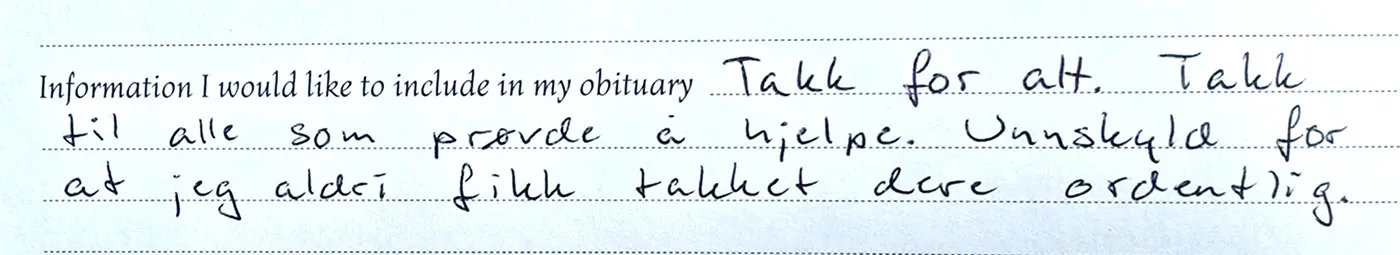 Information I would like to include in my obituary Takk for alt. Takk
til alle som prøvde å hjelpe. Unnskyld for
at jeg aldri fikk takket dere ordentlig.